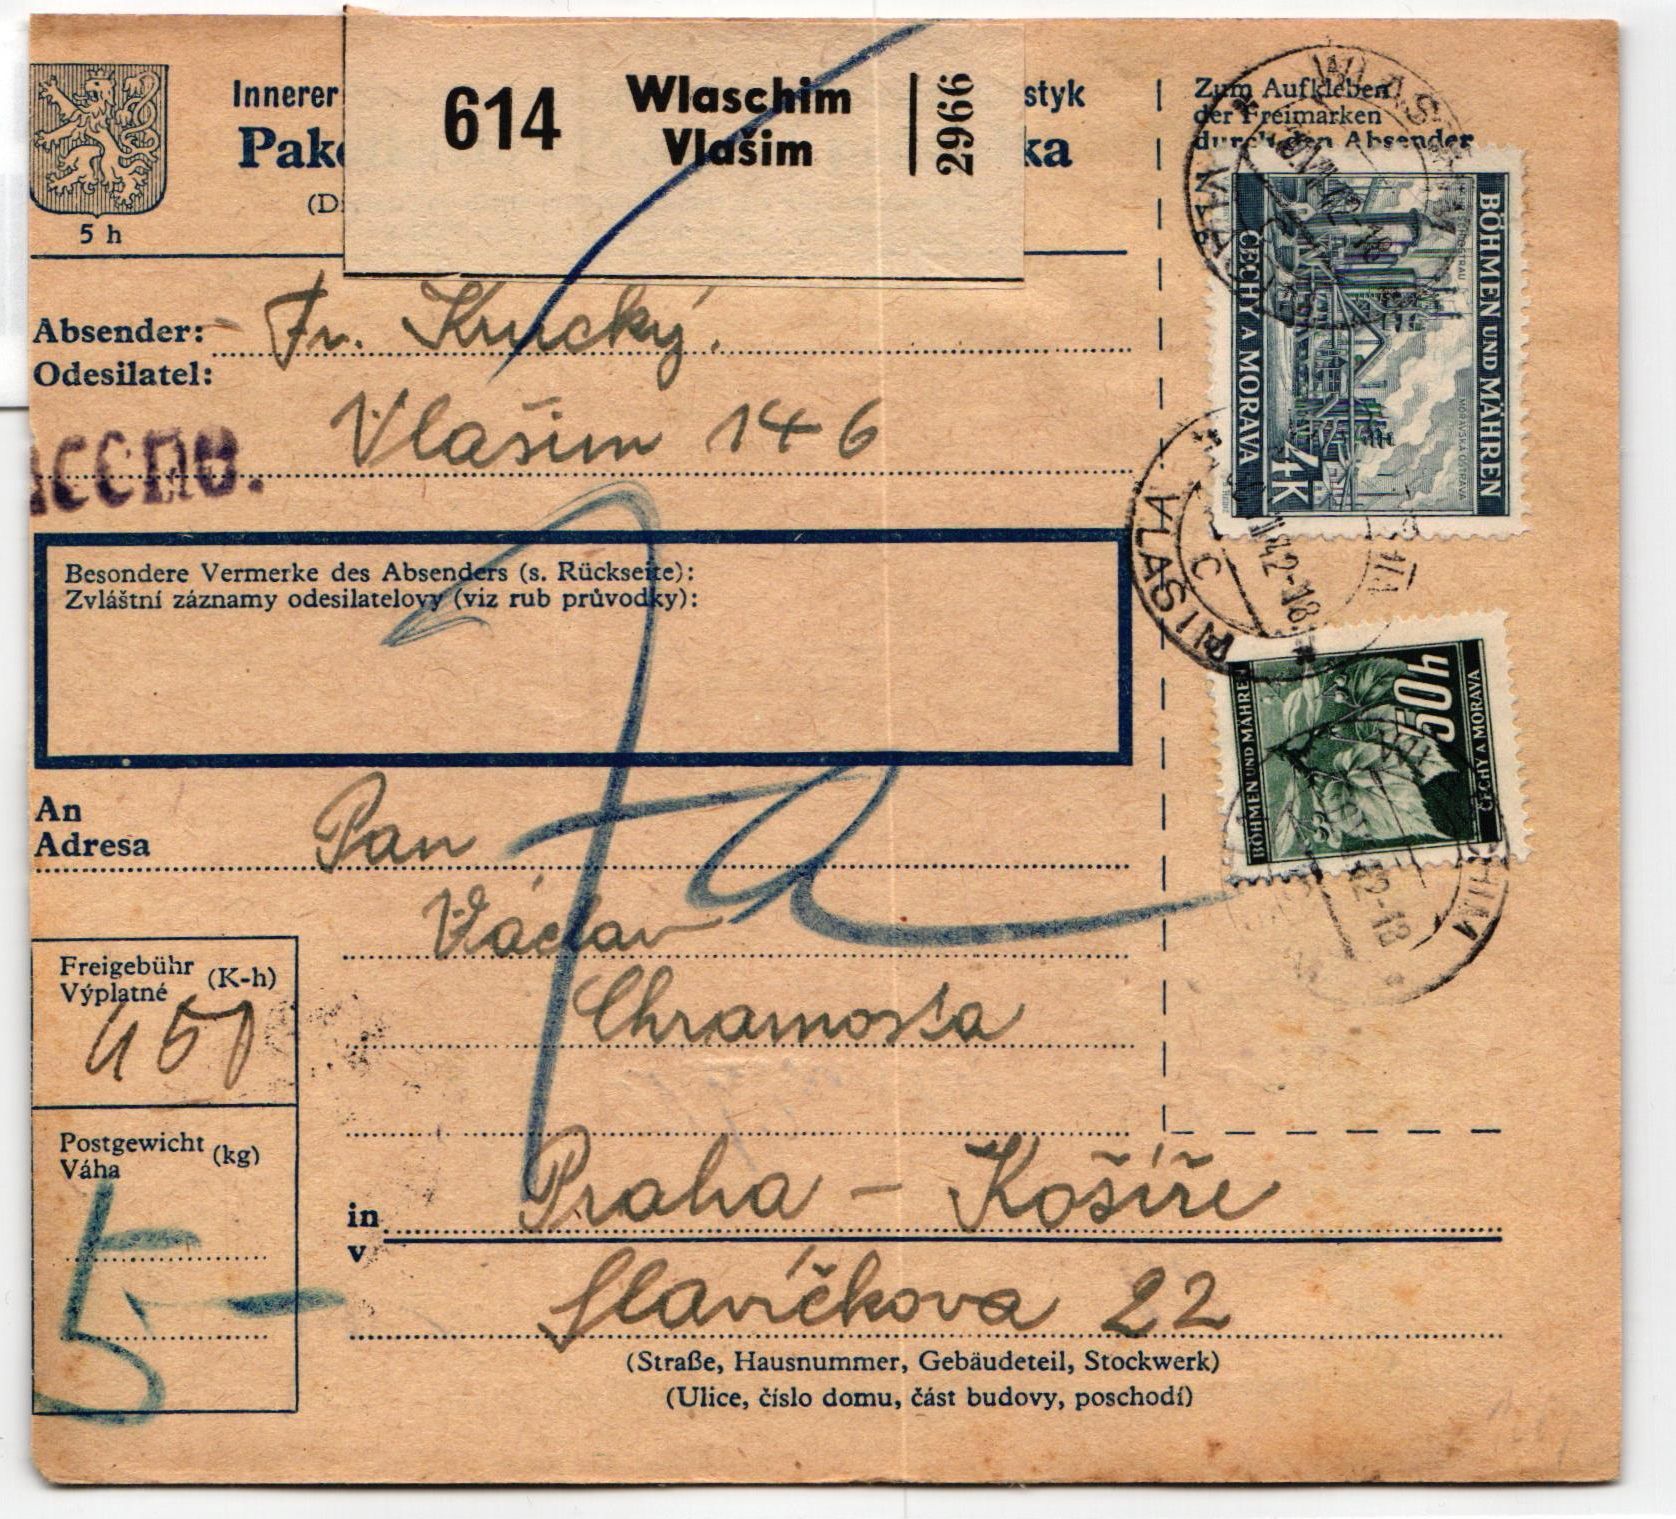 614 Wlaschim
Vlašim
2966
Innerer
styk
Pak
ka
(D
5 h
Zum Aufkleben
der Freimarken
durch den Absender
Absender: Fr. Krucký.
Odesilatel:
Vlašim 146
Besondere Vermerke des Absenders (s. Rückseite):
Zvláštní záznamy odesilatelovy (viz rub průvodky):
An
Adresa Pan
Václav
Chramosta
Freigebühr (K-h)
Výplatné
450
Postgewicht (kg)
Váha
5-
in Praha - Košíře
v
Slavíčkova 22
(Straße, Hausnummer, Gebäudeteil, Stockwerk)
(Ulice, číslo domu, část budovy, poschodí)
BÖHMEN UND MÄHREN
ČECHY A MORAVA
4K
MORAVSKÁ OSTRAVA
VLAŠIM
42-18
BÖHMEN UND MÄHREN
50h
ČECHY A MORAVA
42-18